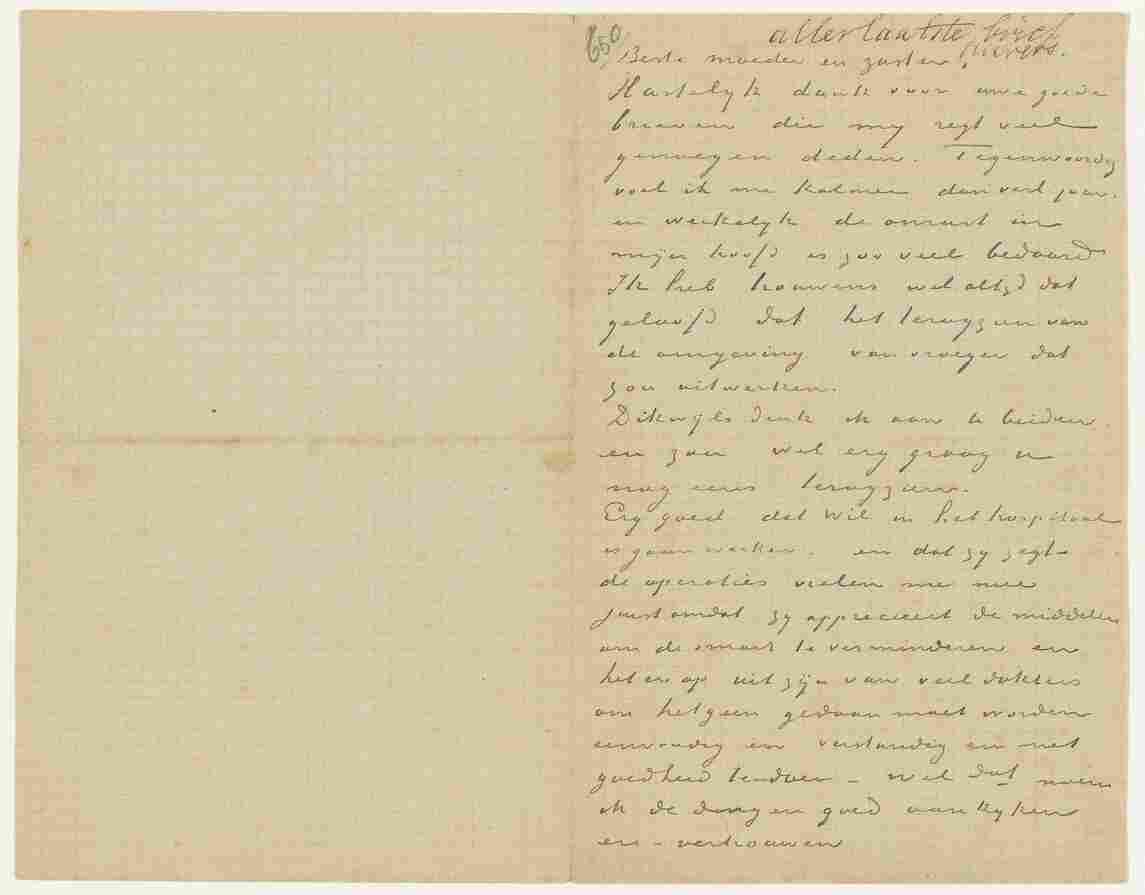 650
allerlaatste brief
Auvers.
Beste moeder en zuster,
Hartelyk dank voor uwe goede
brieven die my regt veel
genoegen deden. Tegenwoordig
voel ik me kalmer dan verl jaar.
en werkelyk de onrust in
mijn hoofd is zoo veel bedaard
Ik heb trouwens wel altyd dat
geloofd dat het terugzien van
de omgeving van vroeger dat
zou uitwerken.
Dikwyls denk ik aan U beiden
en zou wel erg graag U
nog eens terugzien.
Erg goed dat Wil in het hospitaal
is gaan werken. en dat zy zegt
de operaties vielen me mee
juist omdat zy apprecieert de middelen
om de smart te verminderen en
het er op uit zijn van veel dokters
om hetgeen gedaan moet worden
eenvoudig en verstandig en met
goedheid te doen – wel dat noem
ik de dingen goed aankyken
en – vertrouwen